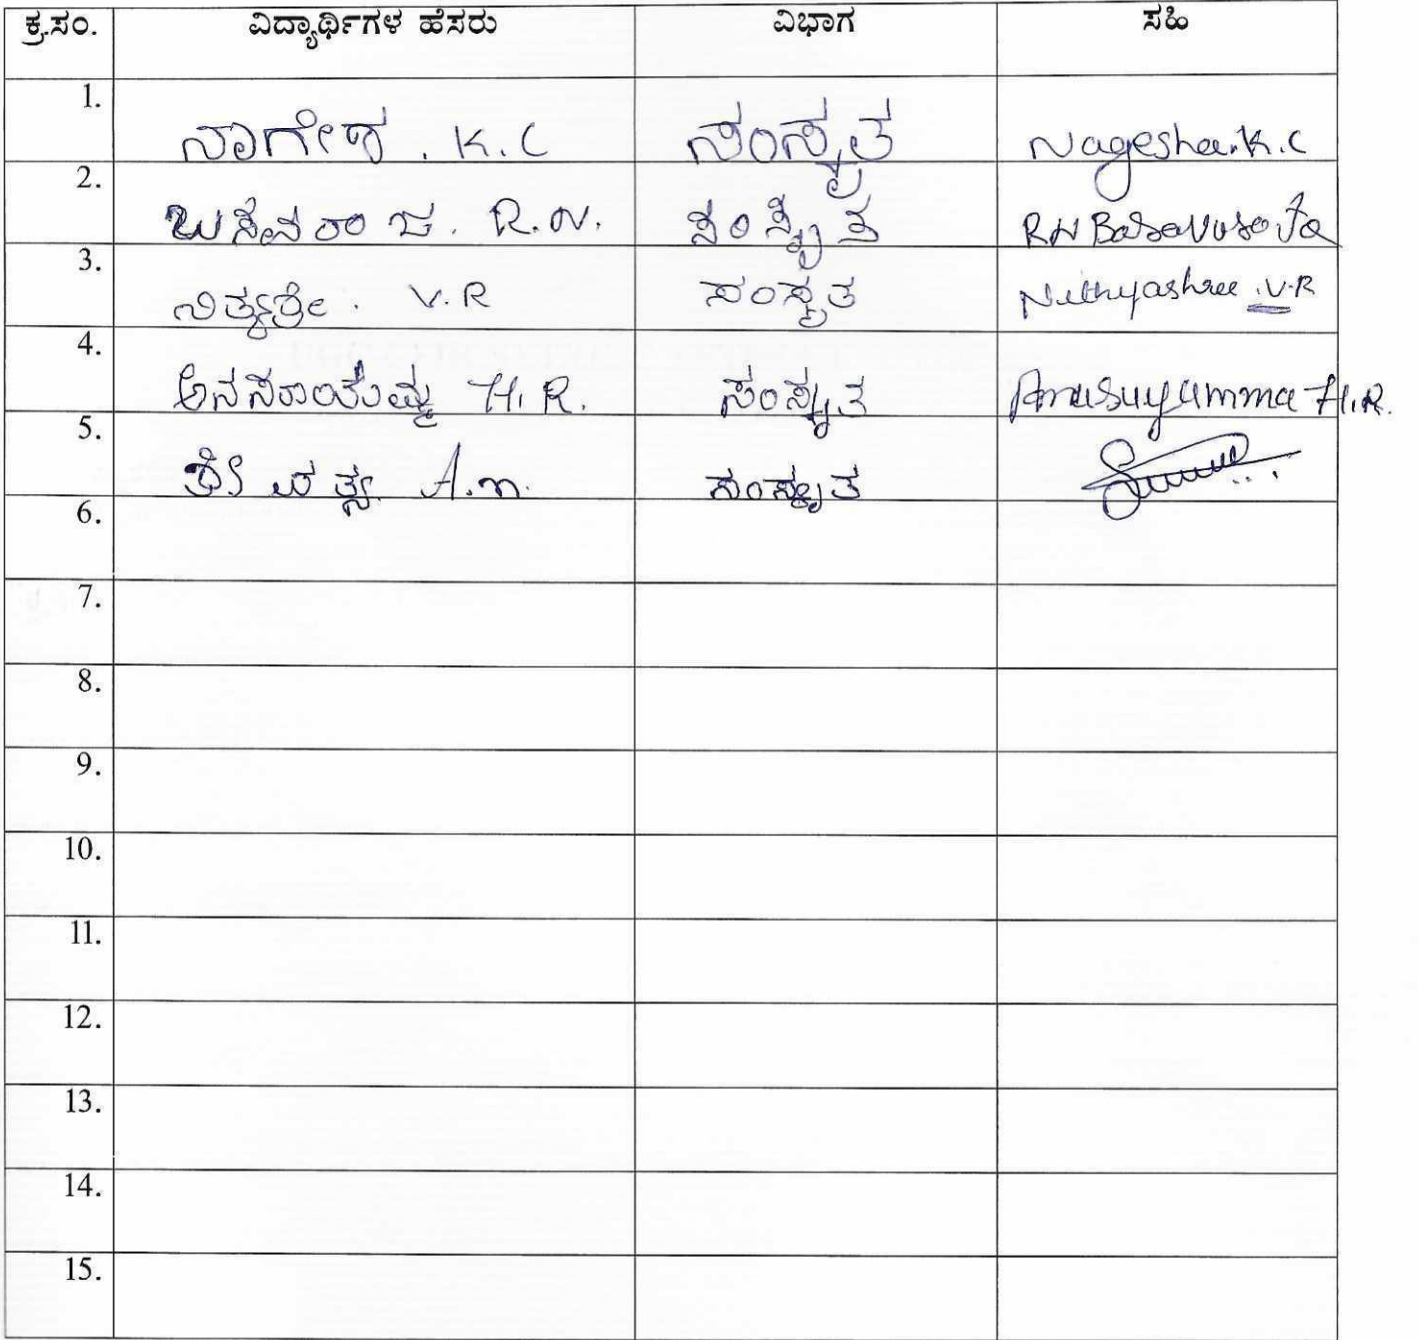 ಕ್ರ.ಸಂ. ವಿದ್ಯಾರ್ಥಿಗಳ ಹೆಸರು ವಿಭಾಗ ಸಹಿ
1. ನಾಗೇಶ . K.C ಸಂಸ್ಕೃತ Nagesha.K.C
2. ಬಸವರಾಜ. R.N. ಸಂಸ್ಕೃತ RN Basavaraja
3. ನಿತ್ಯಶ್ರೀ . V.R ಸಂಸ್ಕೃತ Nithyashree .V.R
4. ಅನಸೂಯಮ್ಮ H.R. ಸಂಸ್ಕೃತ Anusuyamma H.R.
5. ಶ್ರೀವತ್ಸ A.n. ಸಂಸ್ಕೃತ
6.
7.
8.
9.
10.
11.
12.
13.
14.
15.